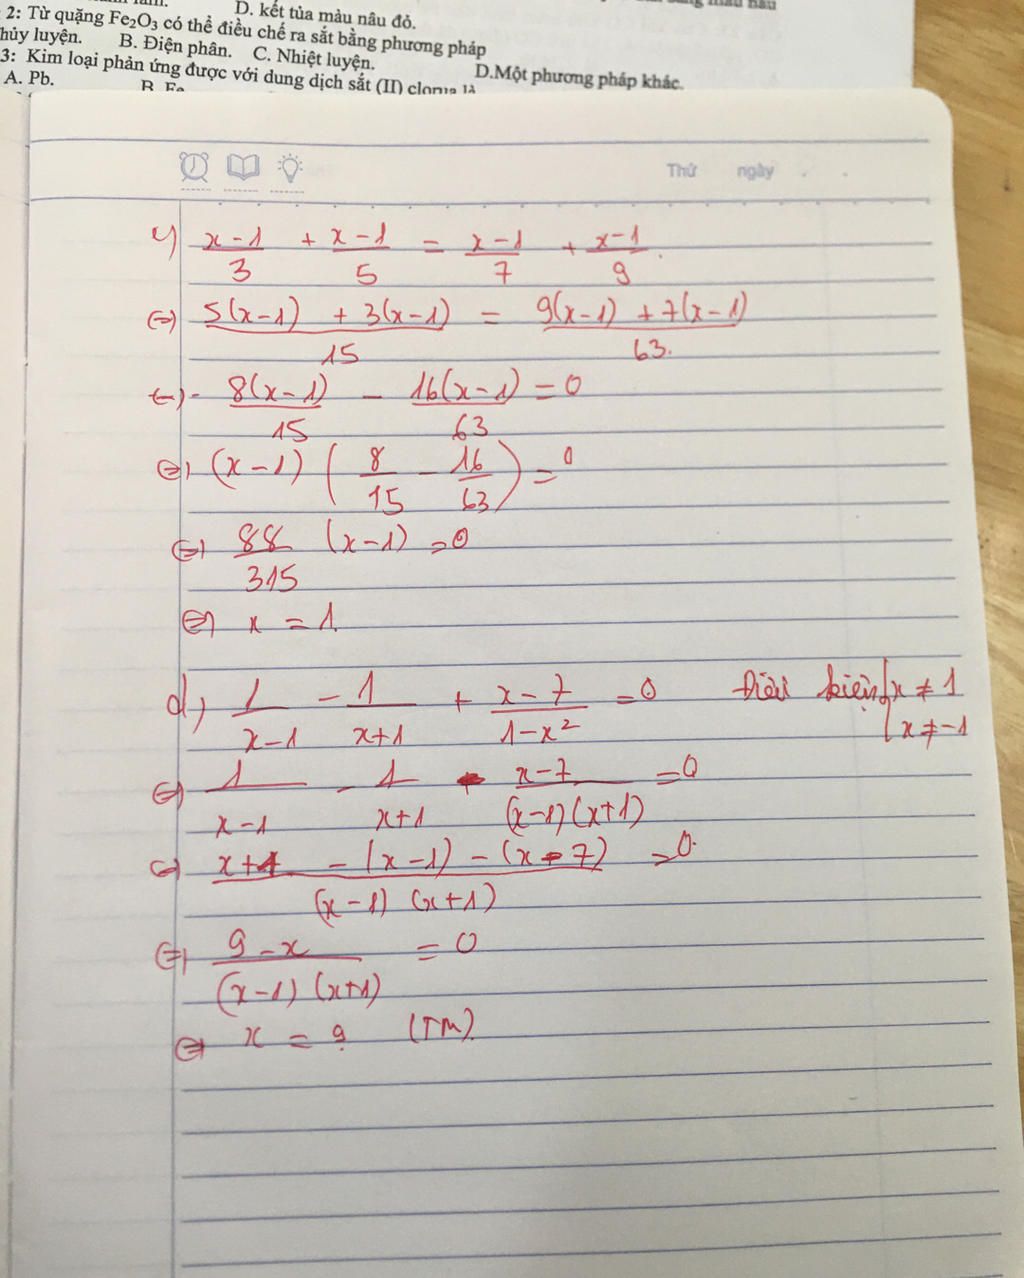 D. kết tủa màu nâu đỏ.
2: Từ quặng Fe₂O₃ có thể điều chế ra sắt bằng phương pháp
hủy luyện. B. Điện phân. C. Nhiệt luyện. D.Một phương pháp khác.
3: Kim loại phản ứng được với dung dịch sắt (II) clorua là
A. Pb. B. Fe
Thứ ngày
c) (x-1)/3 + (x-1)/5 = (x-1)/7 + (x-1)/9.
(=) (5(x-1) + 3(x-1))/15 = (9(x-1) + 7(x-1))/63.
(=) 8(x-1)/15 - 16(x-1)/63 = 0
(=) (x-1) (8/15 - 16/63) = 0
(=) 88/315 (x-1) = 0
(=) x = 1.
d) 1/(x-1) - 1/(x+1) + (x-7)/(1-x²) = 0 Điều kiện { x ≠ 1
x ≠ -1
(=) 1/(x-1) - 1/(x+1) - (x-7)/((x-1)(x+1)) = 0
(=) (x+1 - (x-1) - (x-7))/((x-1)(x+1)) = 0.
(=) (9-x)/((x-1)(x+1)) = 0
(=) x = 9 (TM).